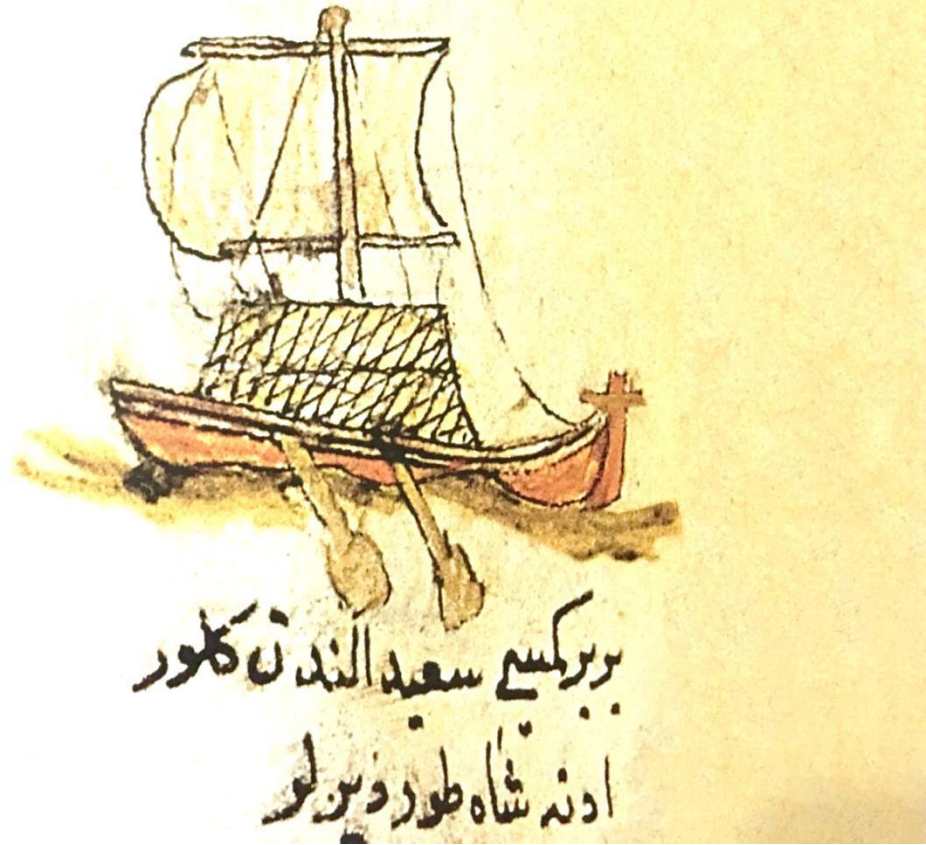 بربر كمسی سعید الندن كلور
اونه شاه طور دیرلر